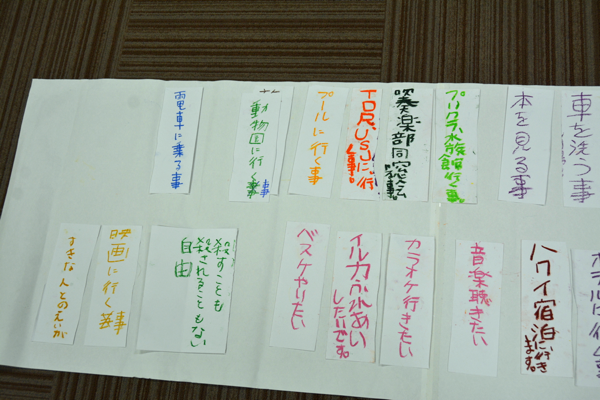 車を洗う事
本を見る事
プリクラ、水族館行く事。
吹奏楽部同窓会
TDR、USJに。行
く事。
プールに行く事
動物園に行く事
電車に乗る事
ハワイ宿泊に行き
ます。
音楽聴きたい
カラオケ行きたい
イルカふれあい
したいです。
バスケやりたい
殺すことも
殺されることもない
自由
映画に行く事
すきな人とのえいが